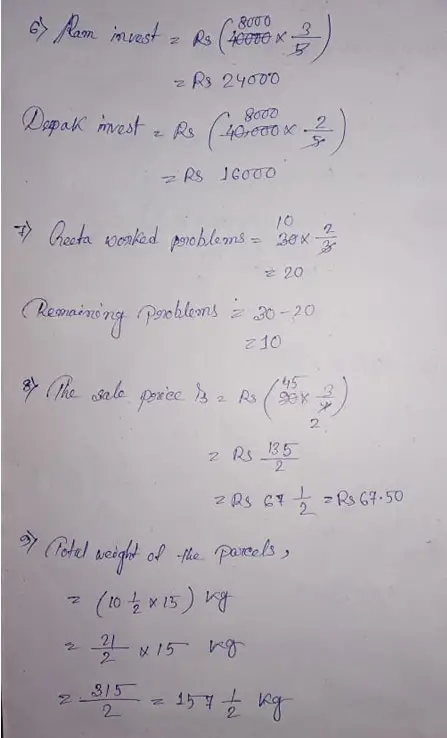 6) Ram invest = Rs (40000 × 3/5) 8000
= Rs 24000
Depak invest = Rs (40,000 × 2/5) 8000
= Rs 16000
7) Geeta worked problems = 30 × 2/3 10
= 20
Remaining problems = 30 - 20
= 10
8) The sale price is = Rs (90 × 3/4) 45 2
= Rs 135/2
= Rs 67 1/2 = Rs 67.50
9) Total weight of the parcels,
= (10 1/2 × 15) kg
= 21/2 × 15 kg
= 315/2 = 157 1/2 kg